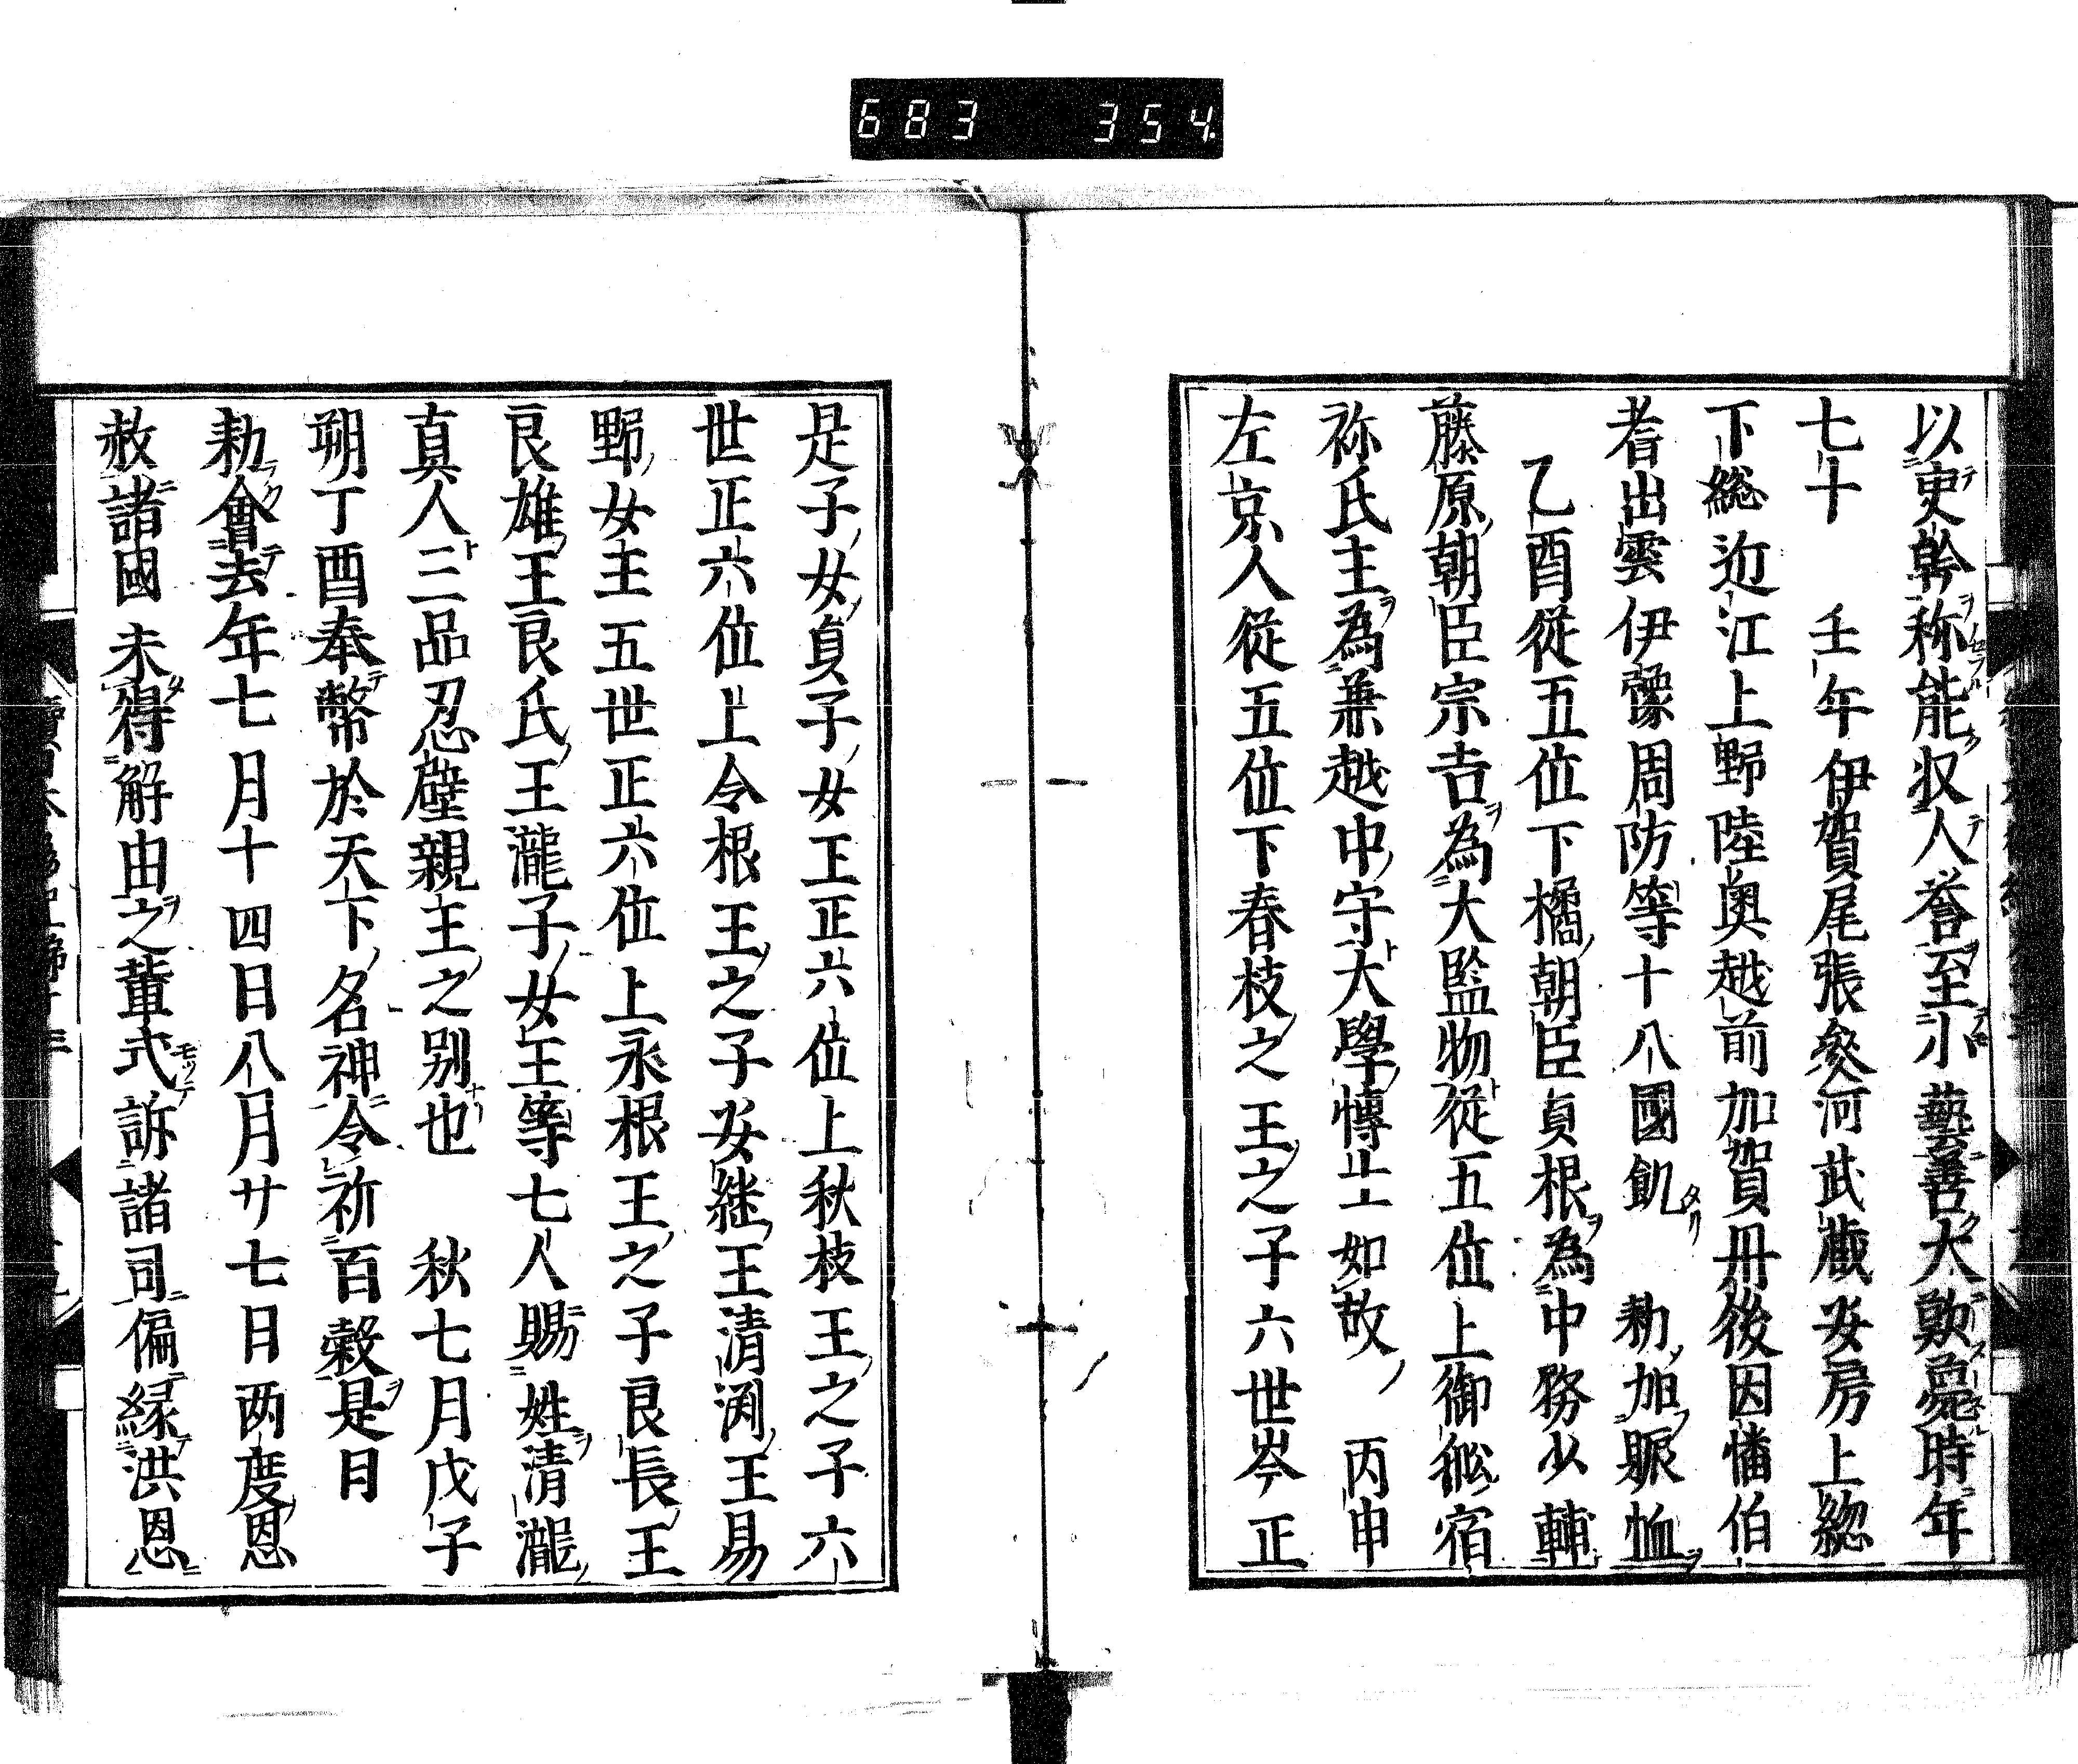 683 354
以吏幹称能収人誉至小藝善大歎薨時年
七十 壬午伊賀尾張參河武蔵安房上総
下総近江上野陸奥越前加賀丹後因幡伯
耆出雲伊豫周防等十八國飢 勅加賑恤
乙酉従五位下橘朝臣貞根為中務少輔
藤原朝臣宗吉為大監物従五位上御船宿
祢氏主為兼越中守大學博士如故 丙申
左京人従五位下春枝之王之子六世岑正
是子女貞子女王正六位上秋枝王之子六
世正六位上令根王之子安継王清渕王易
野女主五世正六位上永根王之子良長王
良雄王良氏王瀧子女王等七人賜姓清瀧
真人三品忍壁親王之別也 秋七月戊子
朔丁酉奉幣於天下名神令祈百穀是日
勅會去年七月十四日八月廿七日両度恩
赦諸國未得解由之輩式訴諸司偏縁洪恩